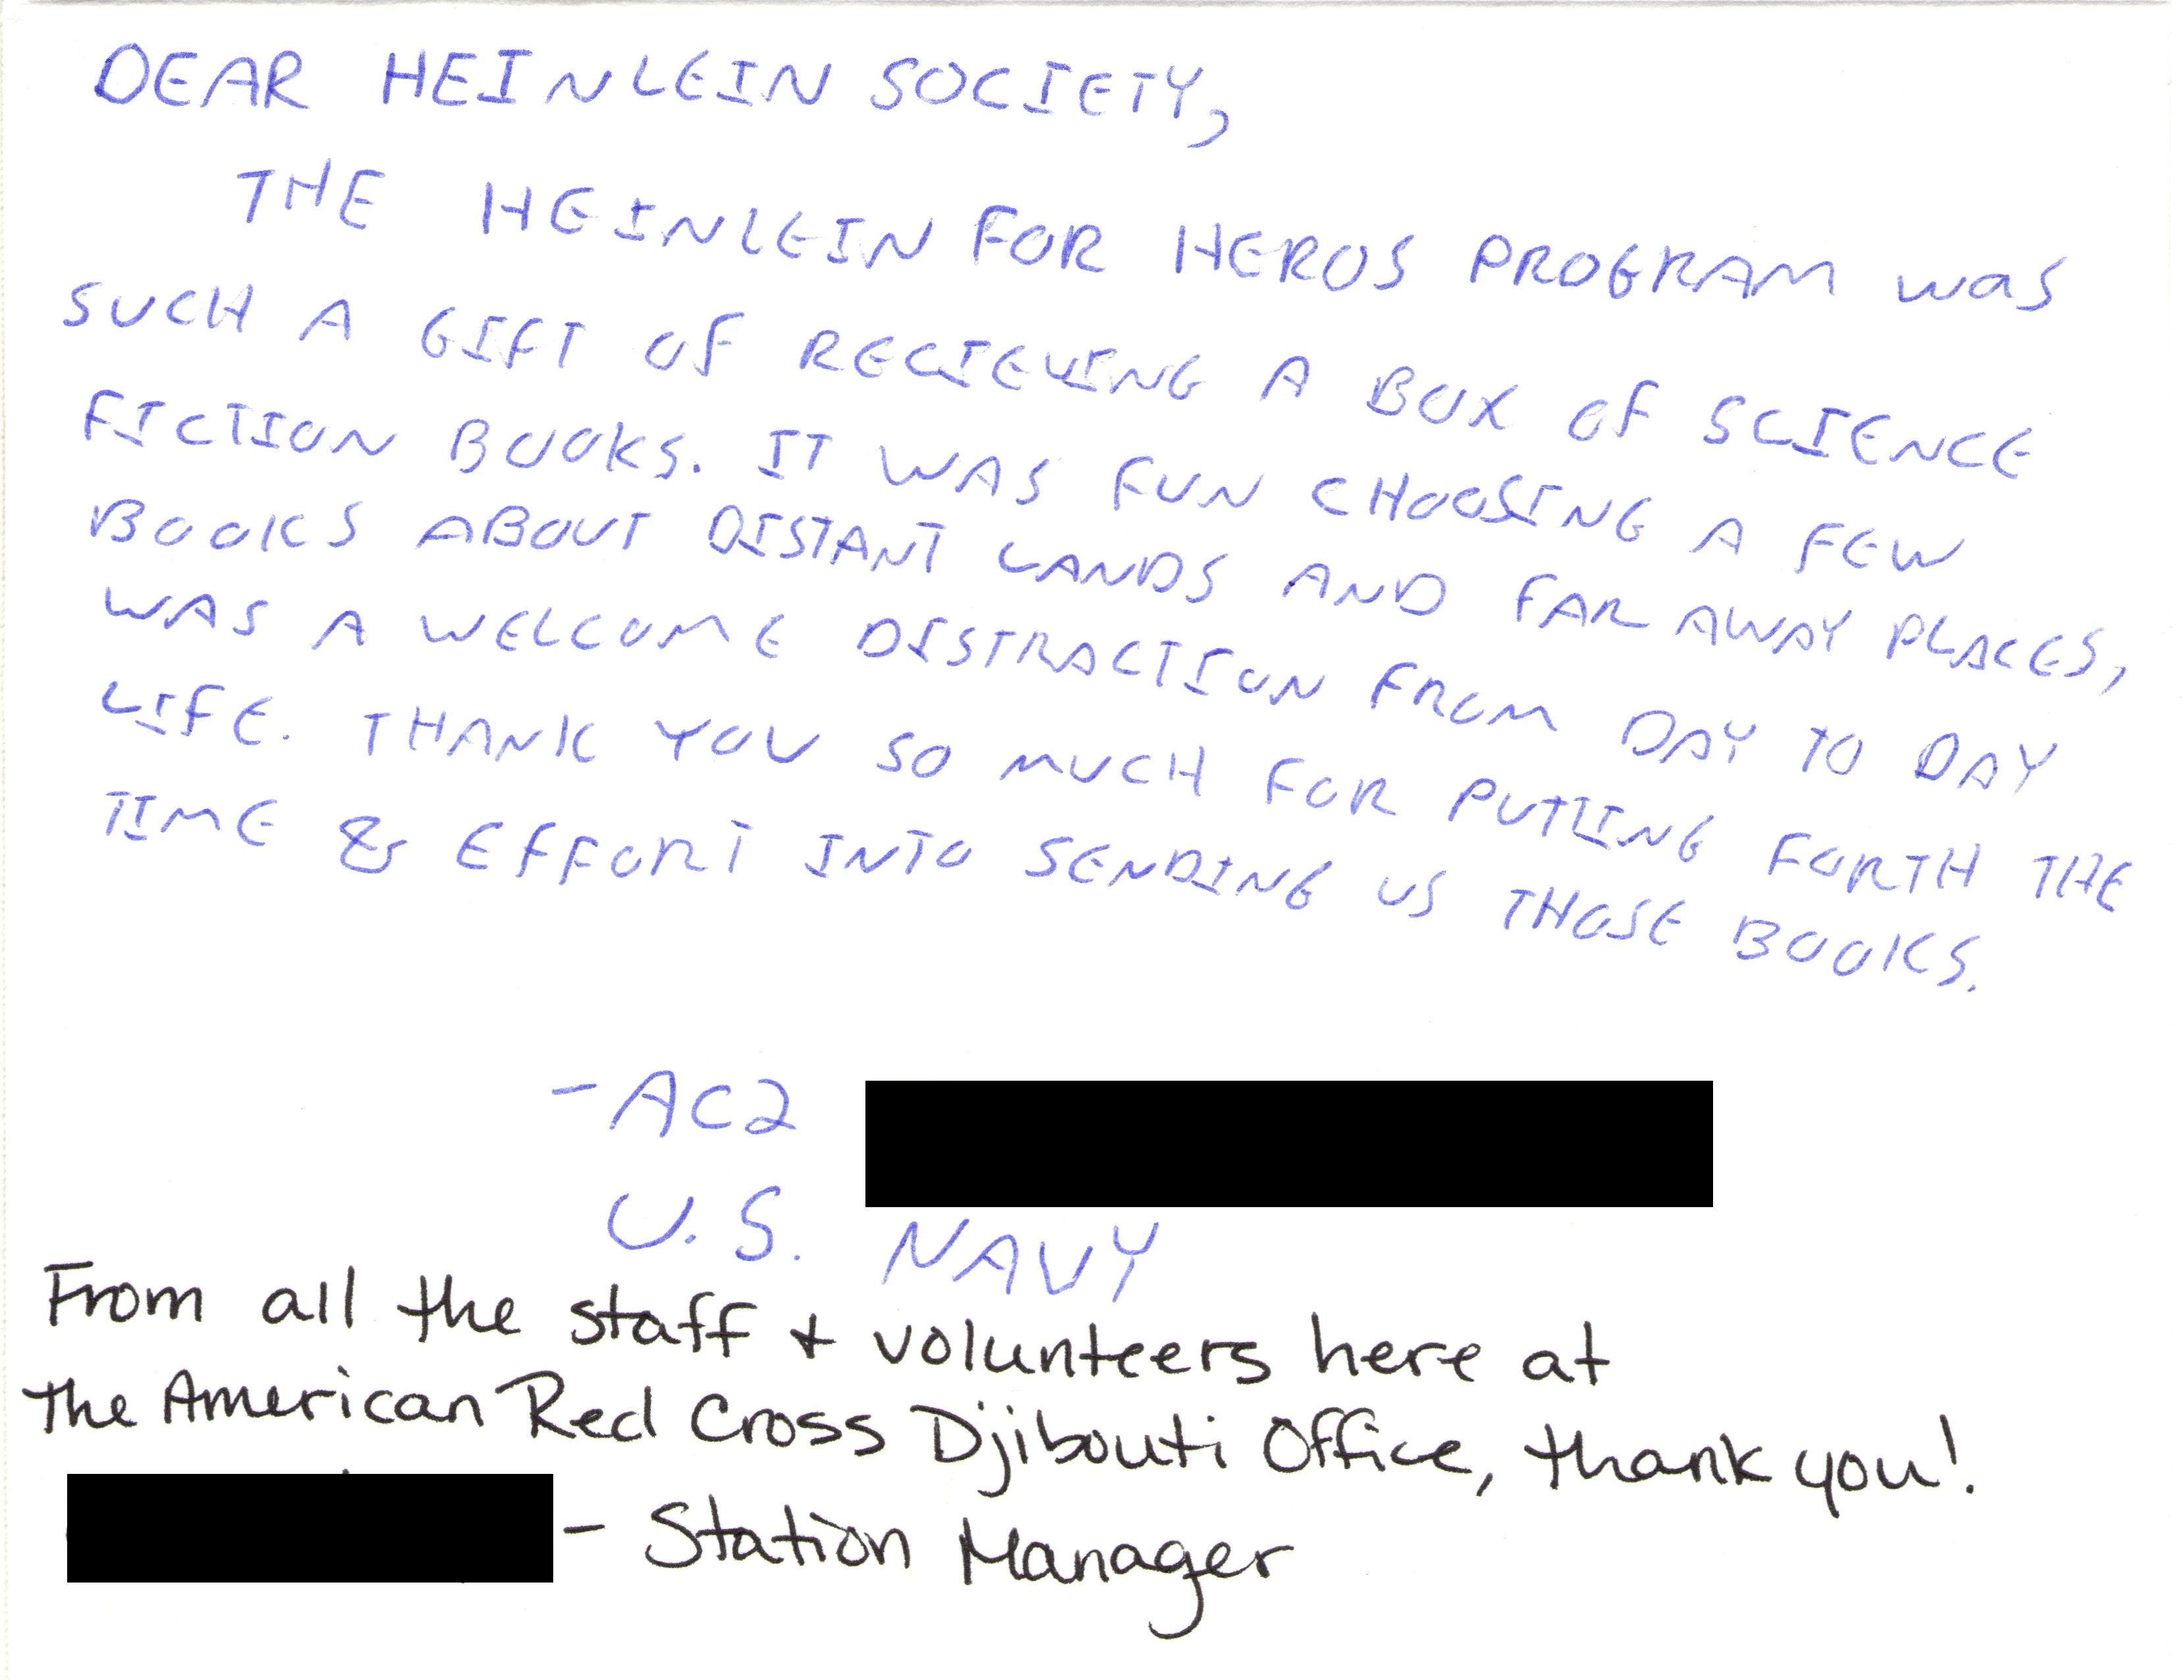 DEAR HEINLEIN SOCIETY,
THE HEINLEIN FOR HEROS PROGRAM was
SUCH A GIFT OF RECIEVING A BOX OF SCIENCE
FICTION BOOKS. IT WAS FUN CHOOSING A FEW
BOOKS ABOUT DISTANT LANDS AND FAR AWAY PLACES,
WAS A WELCOME DISTRACTION FROM DAY TO DAY
LIFE. THANK YOU SO MUCH FOR PUTTING FORTH THE
TIME & EFFORT INTO SENDING US THOSE BOOKS.
- AC2
U.S. NAVY
From all the staff + volunteers here at
the American Red Cross Djibouti Office, thank you!
- Station Manager